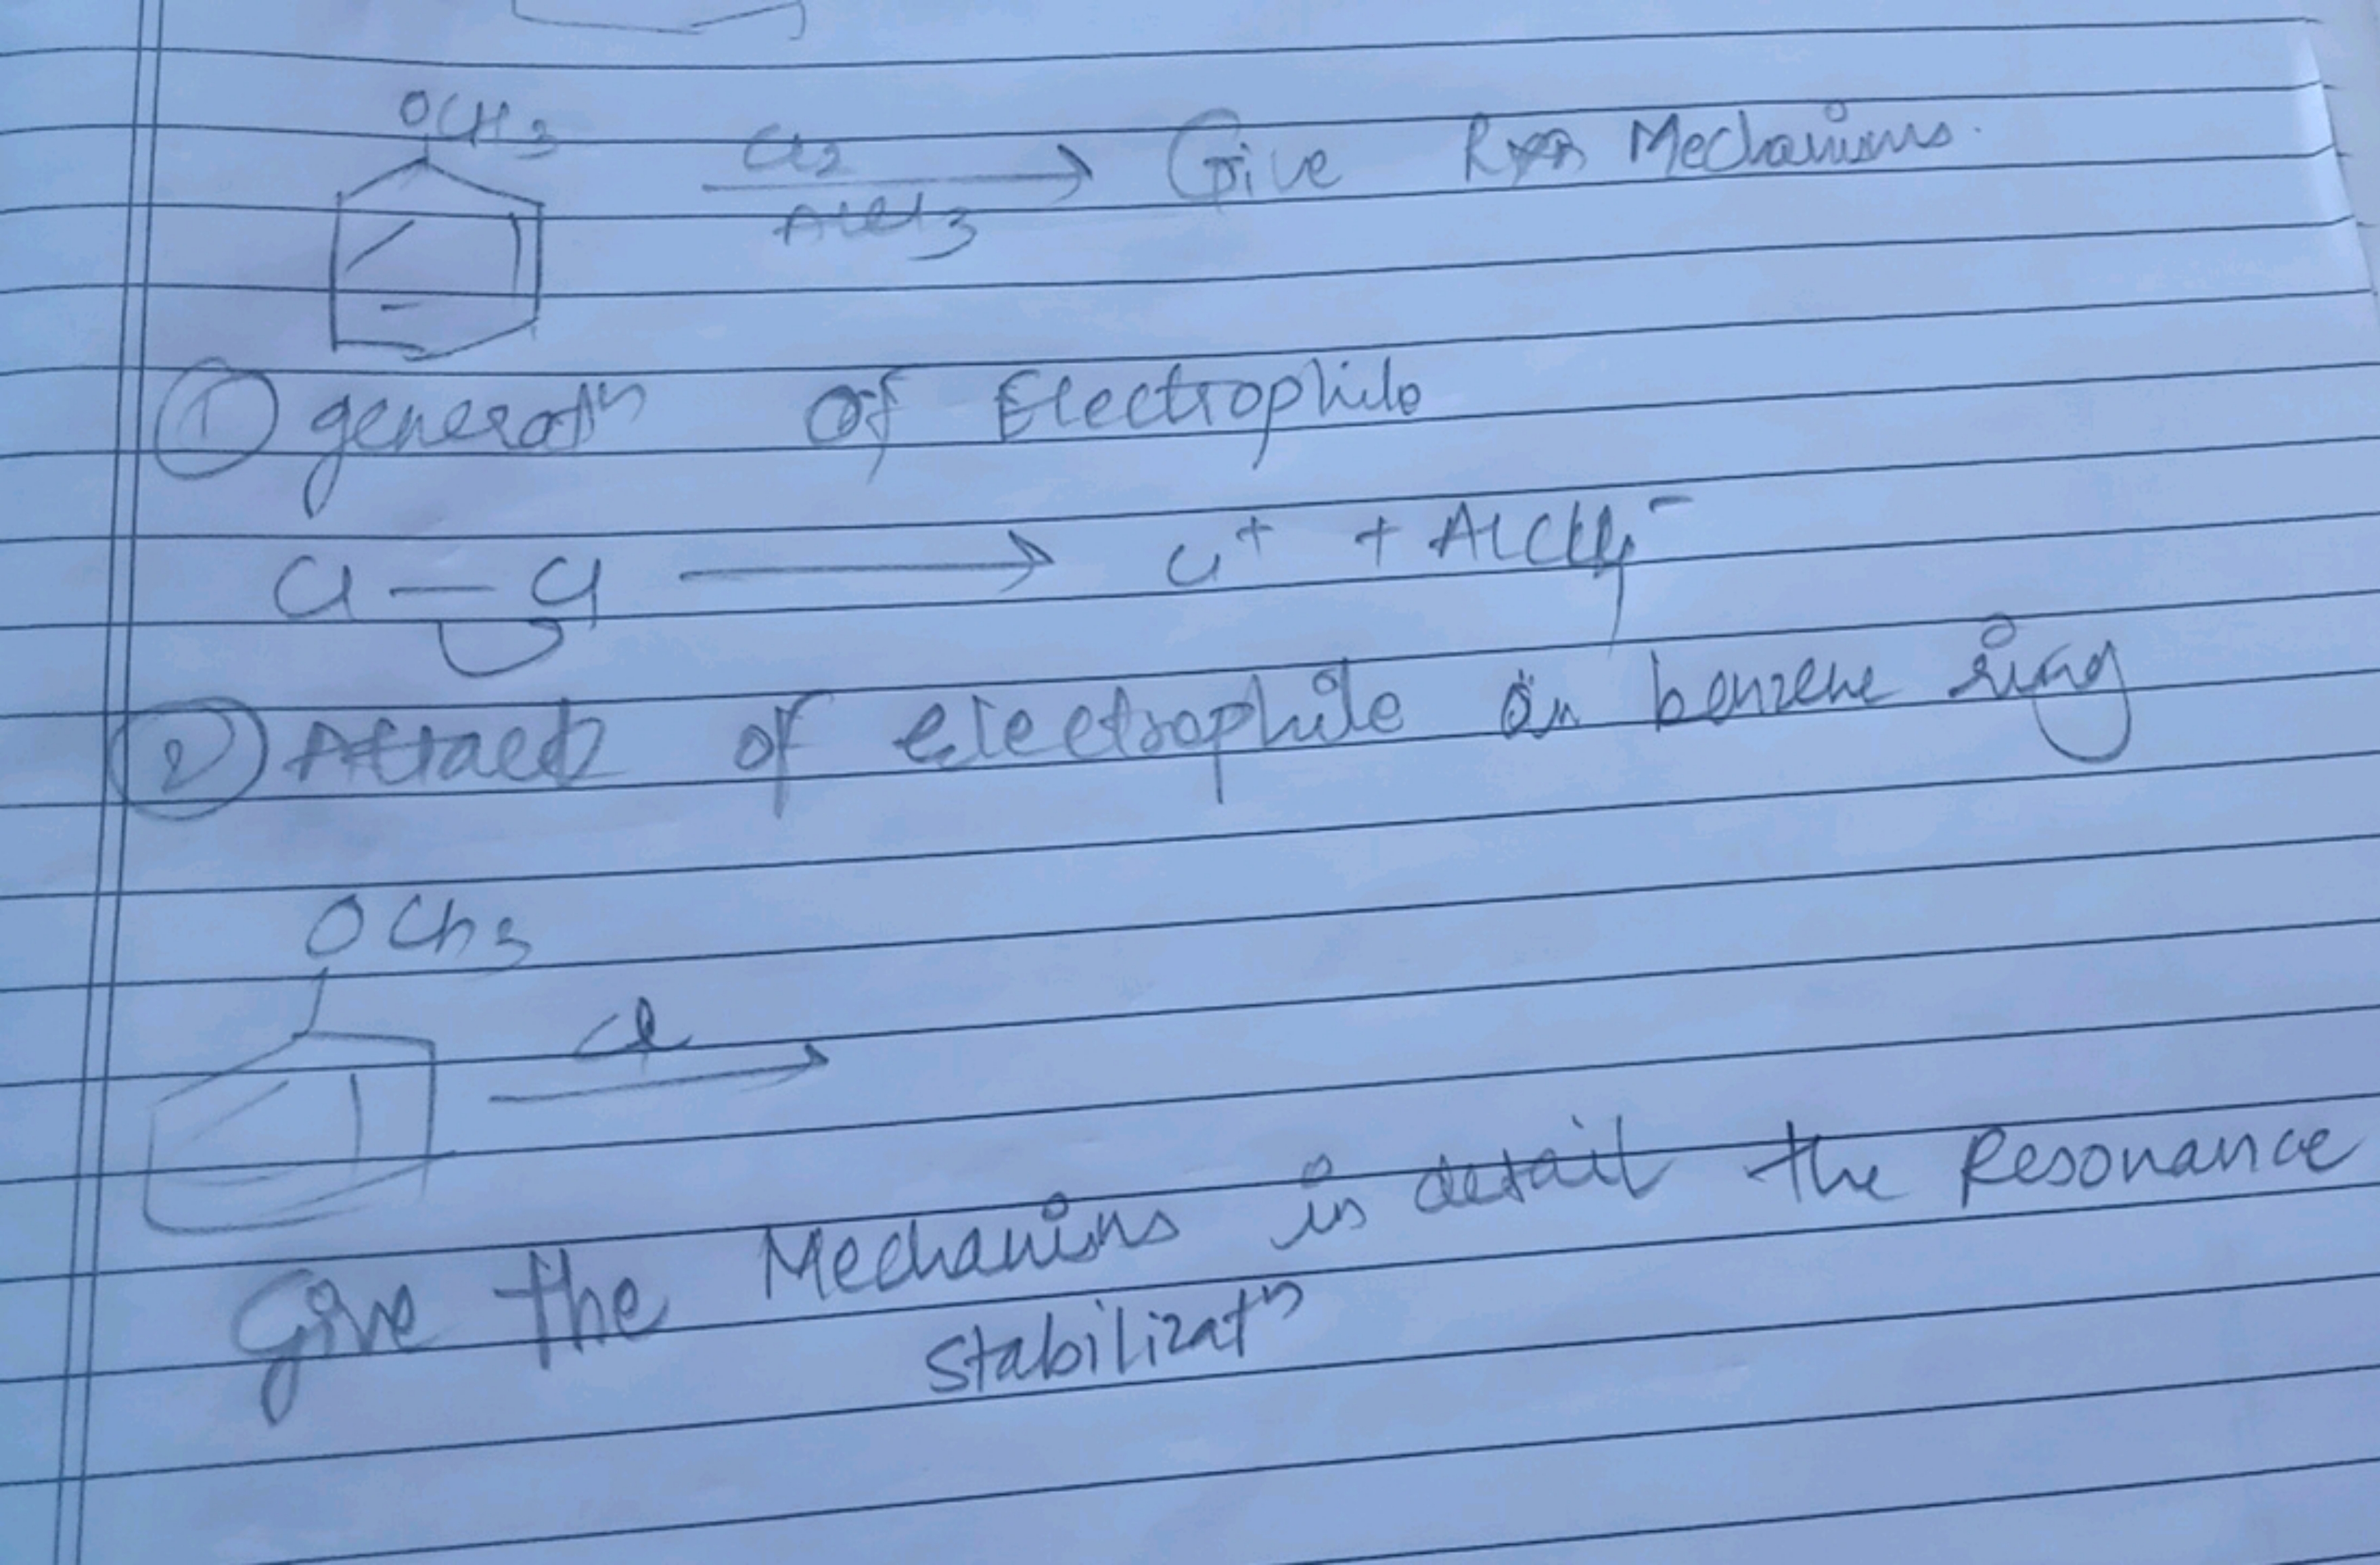 OCH3
Cl2
AlCl3
Give Rxn Mechanisms.
① generatn of Electrophile
Cl — Cl → Cl+ + AlCl4-
② Attack of electrophile on benzene ring
OCh3
Cl
Give the Mechanisms in detail the Resonance
stabilizatn